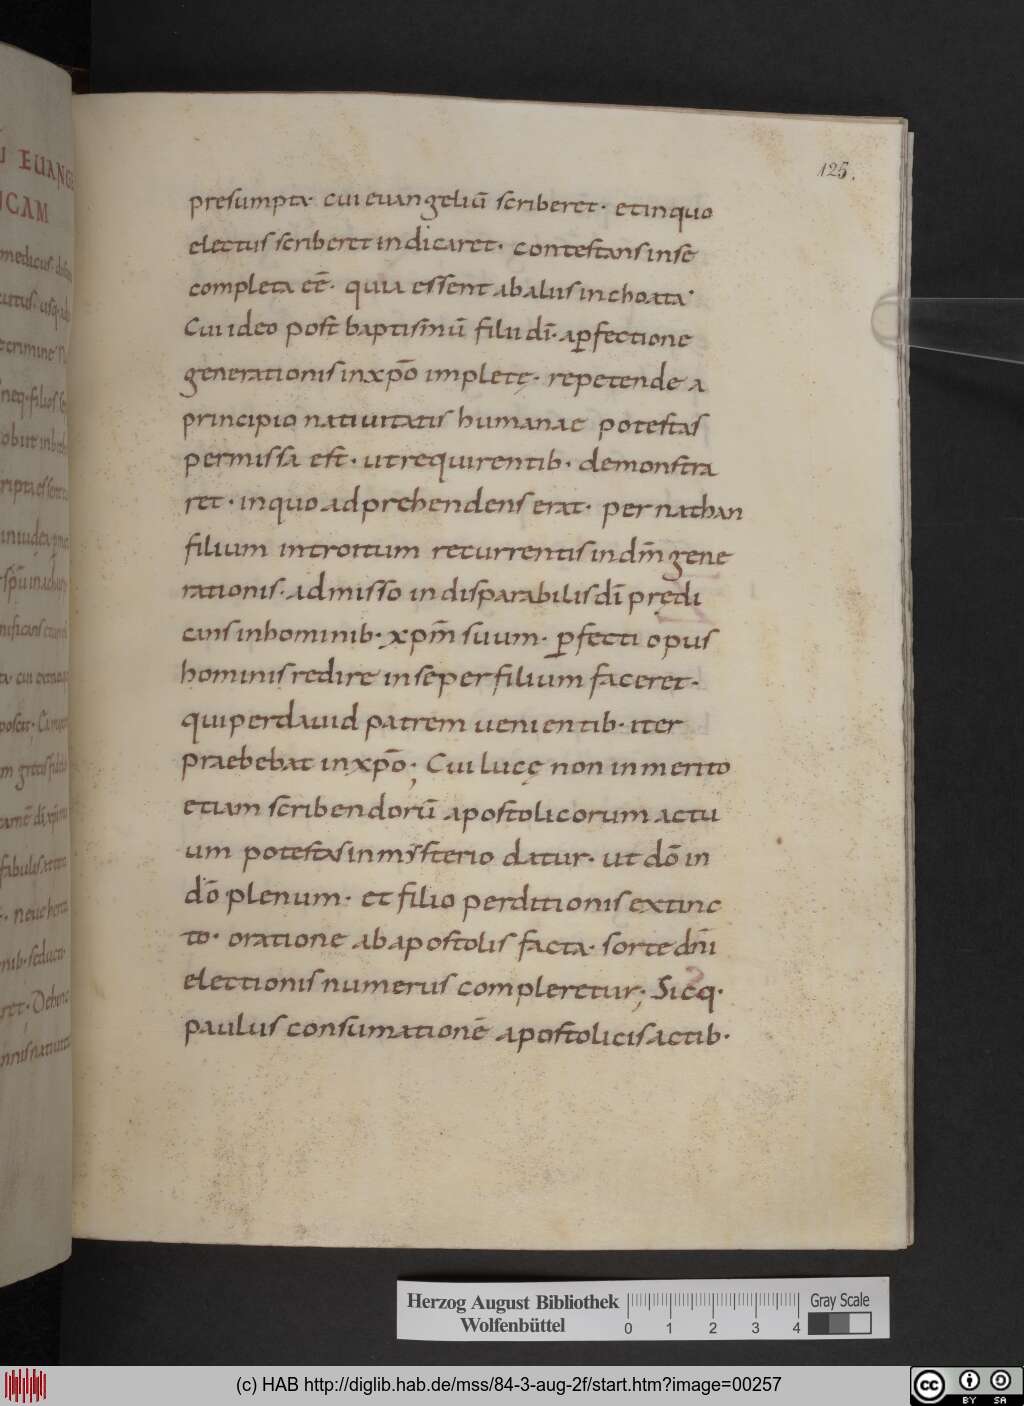 125.
U EUANGE
UCAM
presumpta cui euangeliū scriberet · et in quo
electus scriberet indicaret · contestans in se
completa eē · quia essent ab aliis inchoata
Cui ideo post baptismū filii dī · a ꝑfectione
generationis in xp̄o implete · repetende a
principio natiuitatis humanae potestas
permissa est · ut requirentib · demonstra
ret · in quo adprehendens erat · per nathan
filium introitum recurrentis in dm̄ gene
rationis · admisso indisparabilis dī prędi
cans in hominib · xpm̄ suum · ꝑfecti opus
hominis redire in se per filium faceret ·
qui per dauid patrem uenientib · iter
praebebat in xp̄o ; Cui lucę non inmerito
etiam scribendorū apostolicorum actu
um potestas in mysterio datur · ut dō in
dō plenum · et filio perditionis extinc
to · oratione ab apostolis facta · sorte dn̄i
electionis numerus compleretur ; Sicq ·
paulus consumationē apostolicis actib ·
Herzog August Bibliothek
Wolfenbüttel
0 1 2 3 4
Gray Scale
(c) HAB http://diglib.hab.de/mss/84-3-aug-2f/start.htm?image=00257
cc BY SA